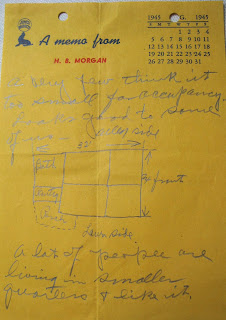 A memo from
H. B. MORGAN
1945 G. 1945
S M T W T F S
1 2 3 4
5 6 7 8 9 10 11
12 13 14 15 16 17 18
19 20 21 22 23 24 25
26 27 28 29 30 31
A very few think it
too small for occupancy.
Looks good to some
of us.
side
32'
front
side
A lot of people are
living in smaller
quarters & like it.